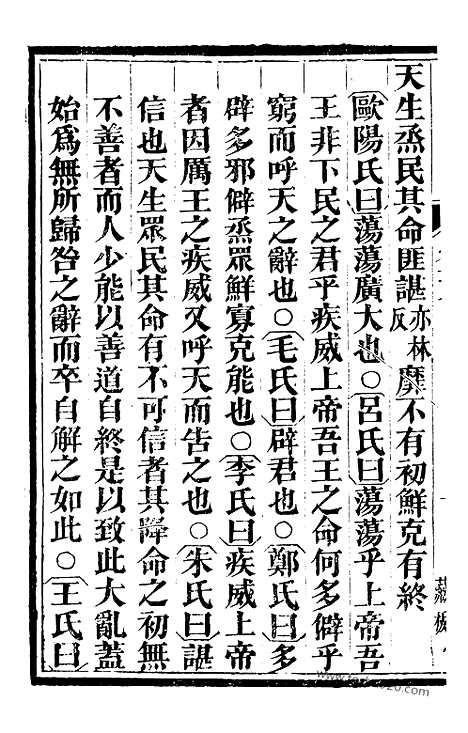 天生烝民其命匪諶亦林反靡不有初鮮克有終
歐陽氏曰蕩蕩廣大也○呂氏曰蕩蕩乎上帝吾
王非下民之君乎疾威上帝吾王之命何多僻乎
窮而呼天之辭也○毛氏曰辟君也○鄭氏曰多
辟多邪僻烝眾鮮寡克能也○李氏曰疾威上帝
者因厲王之疾威又呼天而告之也○朱氏曰諶
信也天生眾民其命有不可信者其降命之初無
不善者而人少能以善道自終是以致此大亂蓋
始為無所歸咎之辭而卒自解之如此○王氏曰